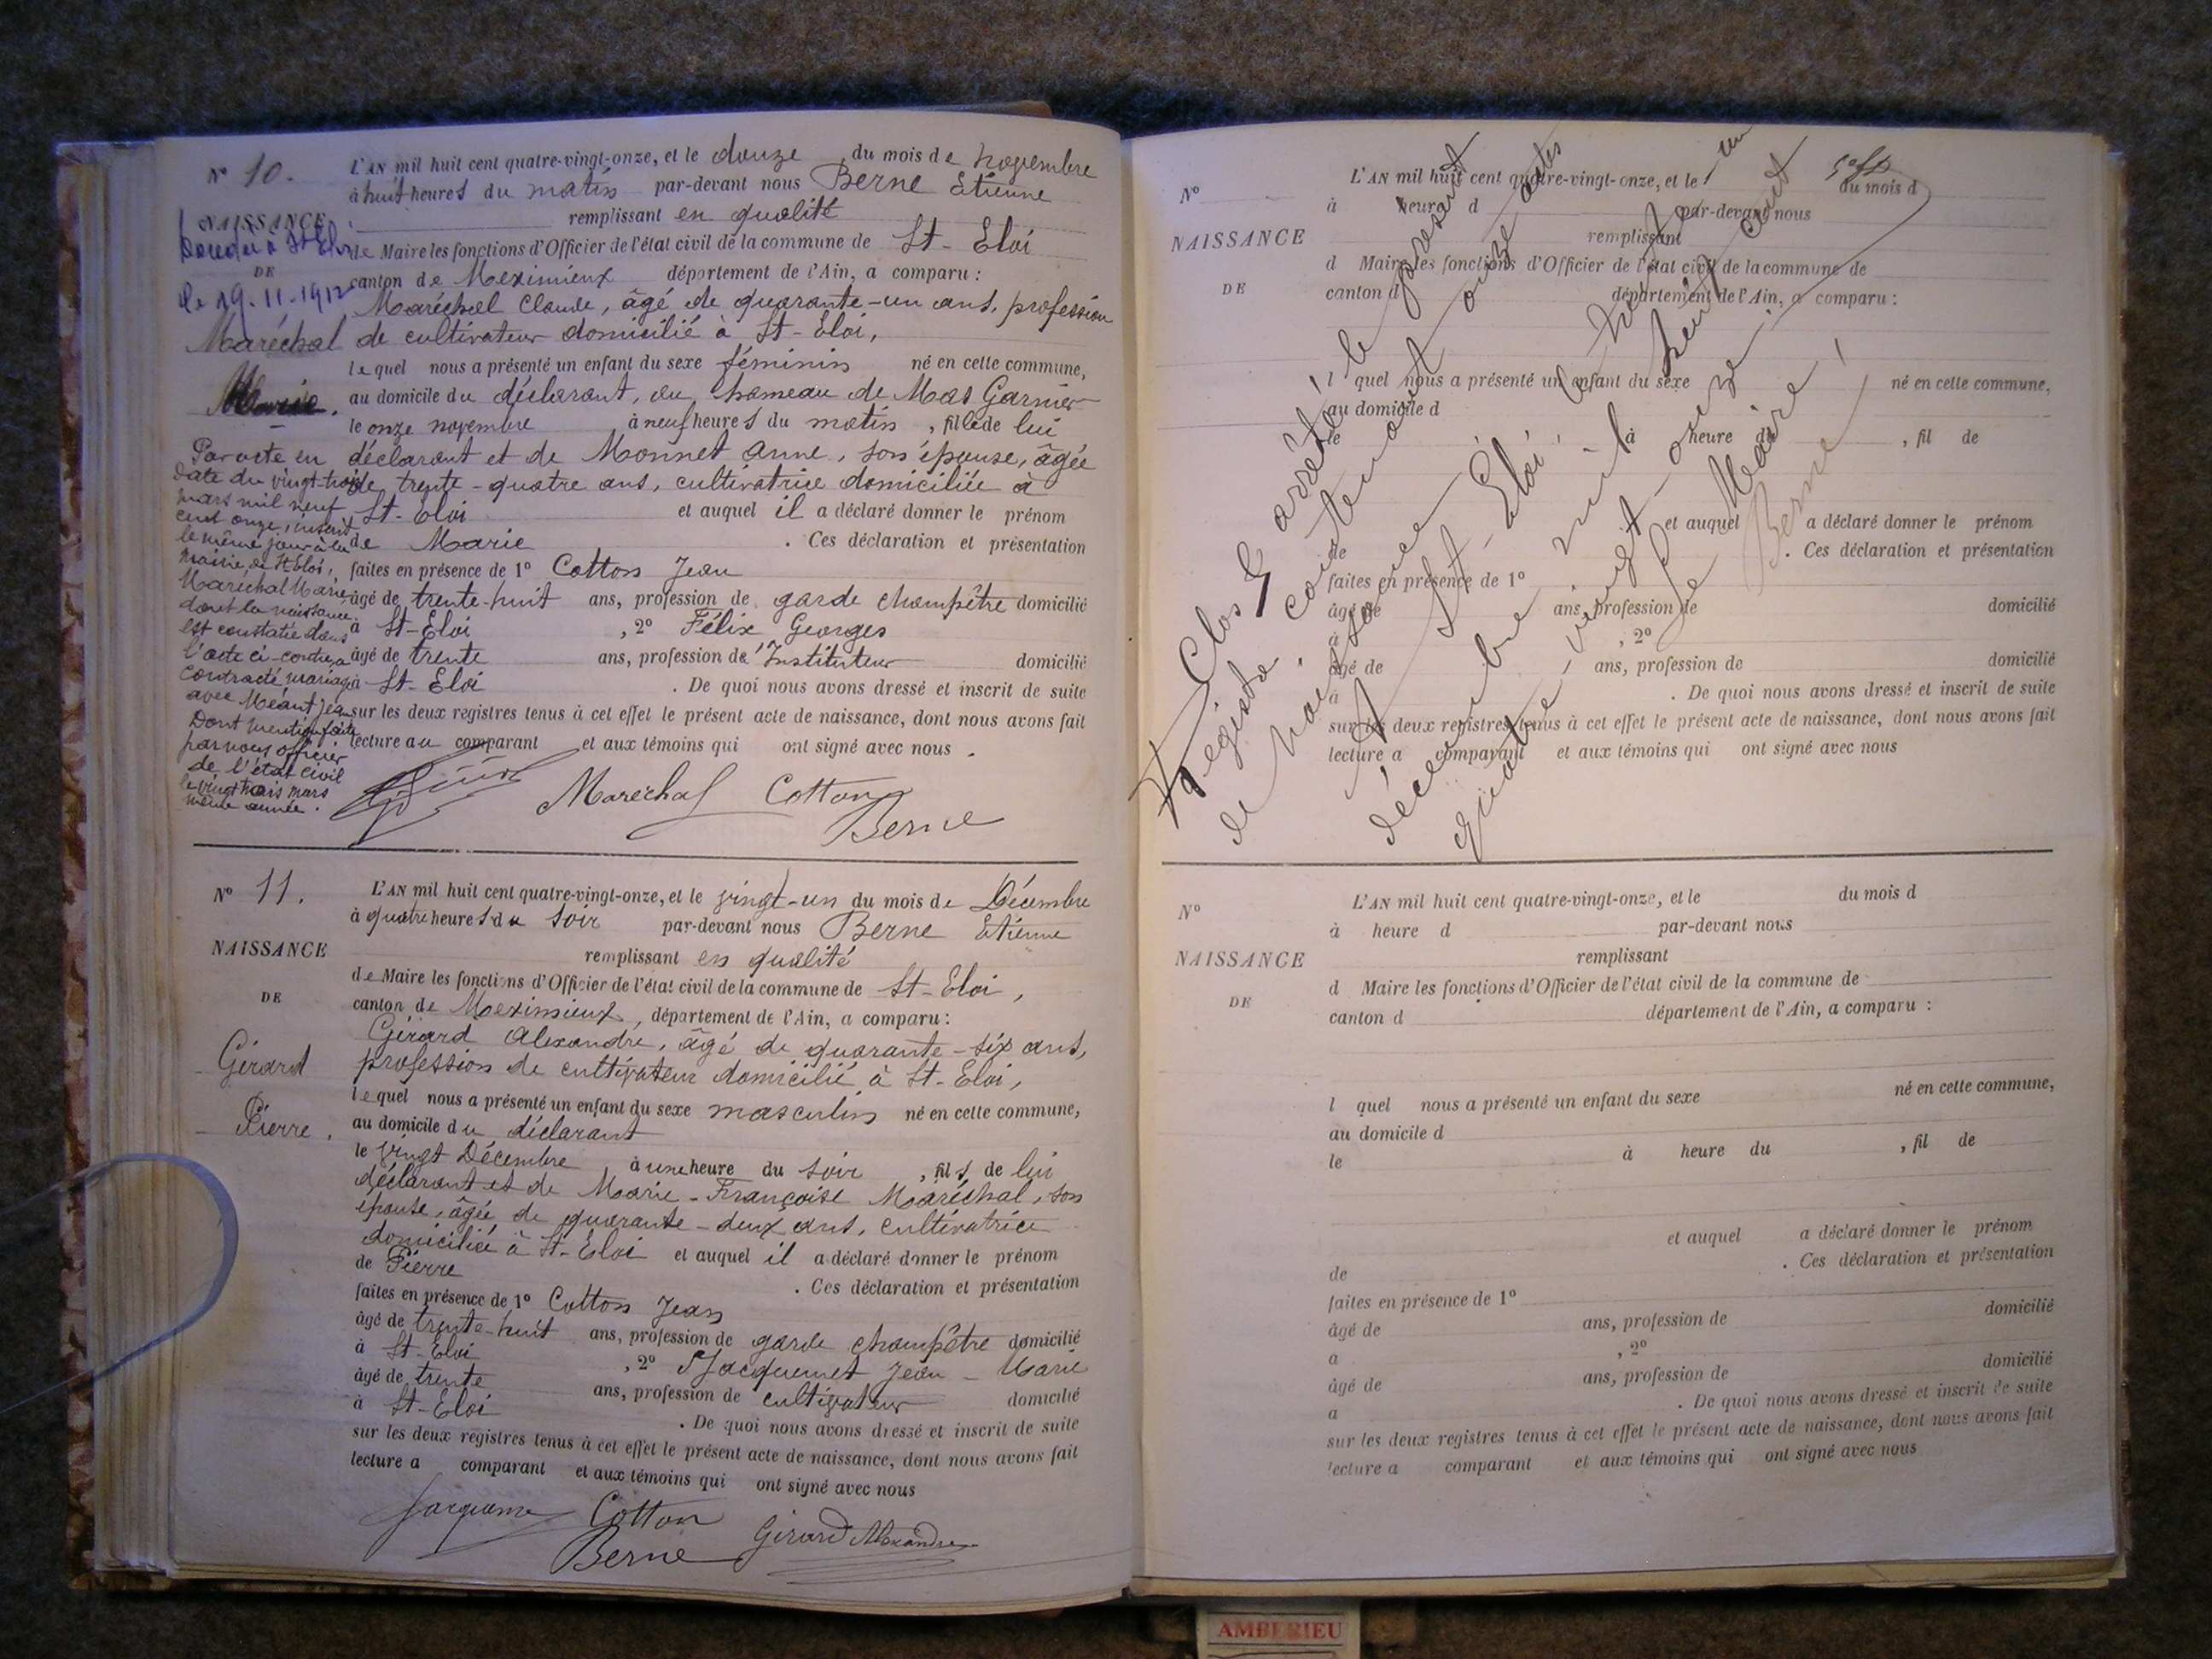 N° 10.
NAISSANCE
Décédée à St Eloi
DE
le 19-11-1912
Maréchal
Marie.
Par acte en
date du vingt-trois
mars mil neuf
cent onze, inscrit
le même jour à la
mairie de St Eloi,
Maréchal Marie
dont la naissance
est constatée dans
l'acte ci-contre, a
contracté mariage
avec Méant Jean
Dont mention faite
par nous officier
de l'état civil
le vingt trois mars
même année.
L'AN mil huit cent quatre-vingt-onze, et le douze du mois de novembre
à huit heures du matin par-devant nous Berne Etienne
remplissant en qualité
de Maire les fonctions d'Officier de l'état civil de la commune de St-Eloi
canton de Meximieux département de l'Ain, a comparu :
Maréchal Claude, âgé de quarante-un ans, profession
de cultivateur domicilié à St-Eloi,
lequel nous a présenté un enfant du sexe féminin né en cette commune,
au domicile du déclarant, au hameau de Mas Garnier
le onze novembre à neuf heures du matin, fille de lui
déclarant et de Monnet Anne, son épouse, âgée
de trente-quatre ans, cultivatrice domiciliée à
St-Eloi et auquel il a déclaré donner le prénom
de Marie . Ces déclaration et présentation
faites en présence de 1° Cotton Jean
âgé de trente-huit ans, profession de garde champêtre domicilié
à St-Eloi , 2° Félix Georges
âgé de trente ans, profession de Instituteur domicilié
à St-Eloi . De quoi nous avons dressé et inscrit de suite
sur les deux registres tenus à cet effet le présent acte de naissance, dont nous avons fait
lecture au comparant et aux témoins qui ont signé avec nous.
Maréchal Cotton
Berne
N° 11.
NAISSANCE
DE
Gérard
Pierre.
L'AN mil huit cent quatre-vingt-onze, et le vingt-un du mois de Décembre
à quatre heures du soir par-devant nous Berne Etienne
remplissant en qualité
de Maire les fonctions d'Officier de l'état civil de la commune de St-Eloi,
canton de Meximieux, département de l'Ain, a comparu :
Gérard Alexandre, âgé de quarante-six ans,
profession de cultivateur domicilié à St-Eloi,
lequel nous a présenté un enfant du sexe masculin né en cette commune,
au domicile du déclarant
le vingt Décembre à une heure du soir , fils de lui
déclarant et de Marie-Françoise Maréchal, son
épouse, âgée de quarante-deux ans, cultivatrice
domiciliée à St-Eloi et auquel il a déclaré donner le prénom
de Pierre . Ces déclaration et présentation
faites en présence de 1° Cotton Jean
âgé de trente-huit ans, profession de garde champêtre domicilié
à St-Eloi , 2° Jacquemet Jean-Marie
âgé de trente ans, profession de cultivateur domicilié
à St-Eloi . De quoi nous avons dressé et inscrit de suite
sur les deux registres tenus à cet effet le présent acte de naissance, dont nous avons fait
lecture a comparant et aux témoins qui ont signé avec nous
Cotton
Berne Gérard Alexandre
N°
NAISSANCE
DE
L'AN mil huit cent quatre-vingt-onze, et le du mois d
à heure d par-devant nous
remplissant
d Maire les fonctions d'Officier de l'état civil de la commune de
canton d département de l'Ain, a comparu :
l quel nous a présenté un enfant du sexe né en cette commune,
au domicile d
le à heure du , fil de
et auquel a déclaré donner le prénom
de . Ces déclaration et présentation
faites en présence de 1°
âgé de ans, profession de domicilié
à , 2°
âgé de ans, profession de domicilié
à . De quoi nous avons dressé et inscrit de suite
sur les deux registres tenus à cet effet le présent acte de naissance, dont nous avons fait
lecture a comparant et aux témoins qui ont signé avec nous
Clos & arrêté le présent
registre contenant onze actes
de naissance
A St-Eloi, le trente un
décembre mil huit cent
quatre-vingt-onze.
Le Maire
Berne
N°
NAISSANCE
DE
L'AN mil huit cent quatre-vingt-onze, et le du mois d
à heure d par-devant nous
remplissant
d Maire les fonctions d'Officier de l'état civil de la commune de
canton d département de l'Ain, a comparu :
l quel nous a présenté un enfant du sexe né en cette commune,
au domicile d
le à heure du , fil de
et auquel a déclaré donner le prénom
de . Ces déclaration et présentation
faites en présence de 1°
âgé de ans, profession de domicilié
a , 2°
âgé de ans, profession de domicilié
a . De quoi nous avons dressé et inscrit de suite
sur les deux registres tenus à cet effet le présent acte de naissance, dont nous avons fait
lecture a comparant et aux témoins qui ont signé avec nous
AMBERIEU